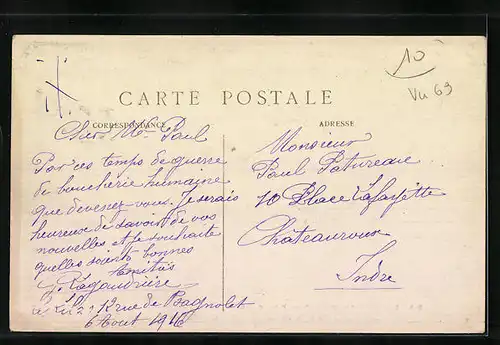 10
Vu 69
CARTE POSTALE
CORRESPONDANCE
ADRESSE
Cher Mr Paul
Par ces temps de guerre
de boucherie humaine
que devenez-vous. Je serais
heureuse de savoir de vos
nouvelles et je souhaite
qu'elles soient bonnes
Amitiés
12 rue de Bagnolet
6 Aout 1916
Monsieur
Paul Patureau
10 Place Lafayette
Chateauroux
Indre